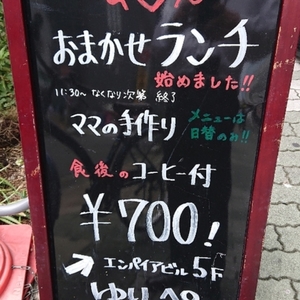 おまかせランチ
始めました!!
11:30〜なくなり次第 終了
ママの手作り
メニューは
日替のみ!!
食後のコーヒー付
¥700!
→エンパイアビル5F